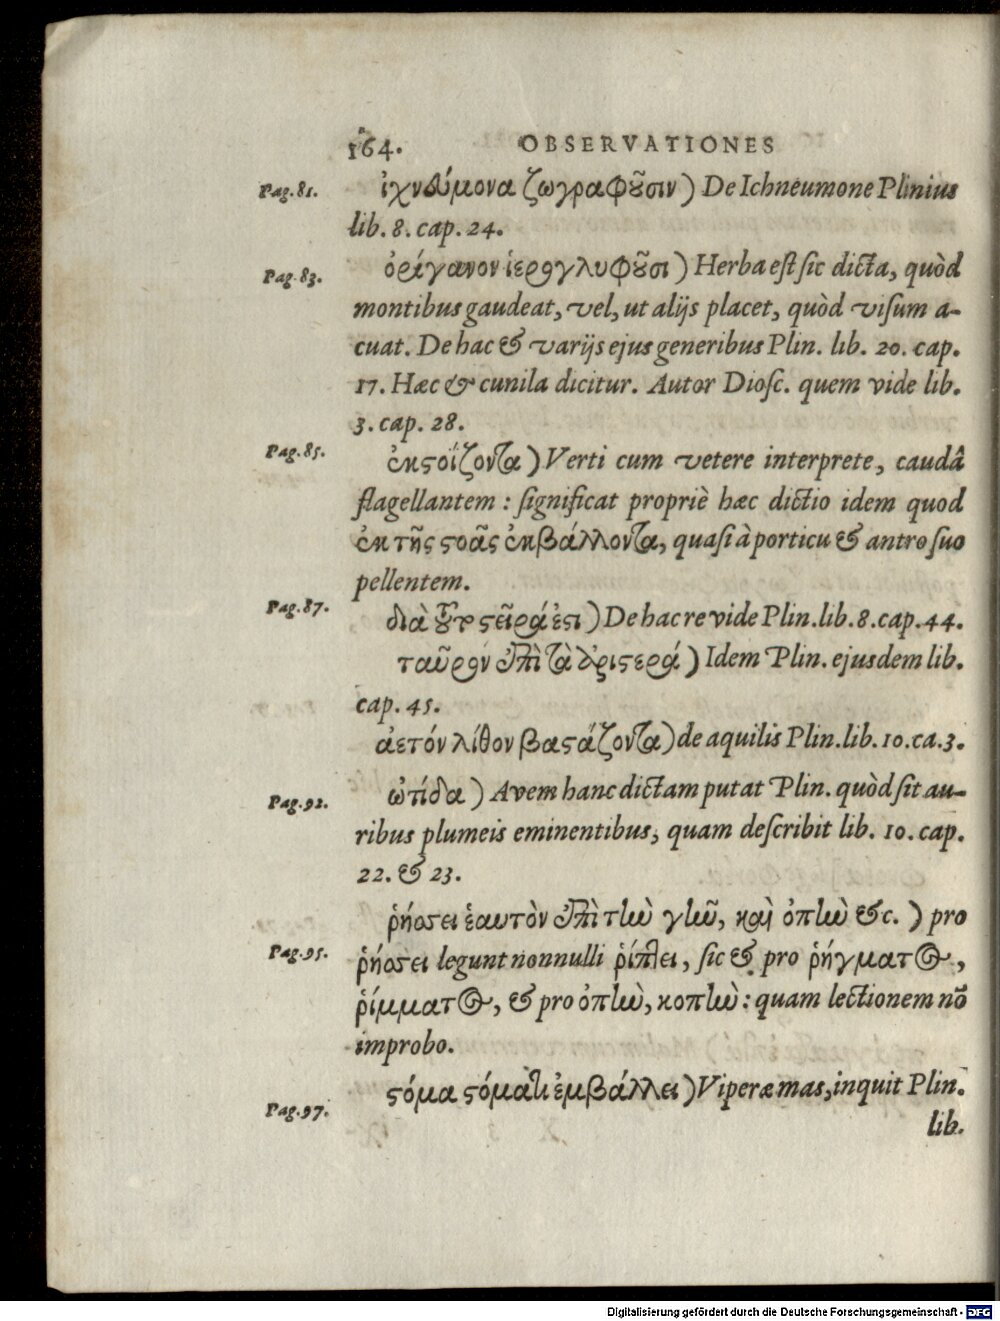 164. OBSERVATIONES
Pag. 81. ἰχνεύμονα ζωγραφοῦσιν) De Ichneumone Plinius
lib. 8. cap. 24.
Pag. 83. ὀρίγανον ἱερογλυφοῦσι) Herba est sic dicta, quòd
montibus gaudeat, vel, ut alijs placet, quòd visum a-
cuat. De hac & varijs ejus generibus Plin. lib. 20. cap.
17. Hæc & cunila dicitur. Autor Diosc. quem vide lib.
3. cap. 28.
Pag. 85. ἐκστοΐζοντα) Verti cum vetere interprete, caudâ
flagellantem: significat propriè hæc dictio idem quod
ἐκ τῆς στοᾶς ἐκβάλλοντα, quasi à porticu & antro suo
pellentem.
Pag. 87. διὰ) De hac re vide Plin. lib. 8. cap. 44.
ταῦρον ἐπὶ τὰ ἀριστερά) Idem Plin. ejusdem lib.
cap. 45.
ἀετόν λίθον βαστάζοντα) de aquilis Plin. lib. 10. ca. 3.
Pag. 92. ὠτίδα) Avem hanc dictam putat Plin. quòd sit au-
ribus plumeis eminentibus, quam describit lib. 10. cap.
22. & 23.
ῥήσσει ἑαυτὸν ἐπὶ τὴν γῆν, καὶ ὀπὴν &c.) pro
Pag. 95. ῥήσσει legunt nonnulli ῥίπτει, sic & pro ῥήγματος,
ῥίμματος, & pro ὀπὴν, κοπὴν: quam lectionem nõ
improbo.
Pag. 97. στόμα στόματι ἐμβάλλει) Viperæ mas, inquit Plin.
lib.
Digitalisierung gefördert durch die Deutsche Forschungsgemeinschaft - DFG